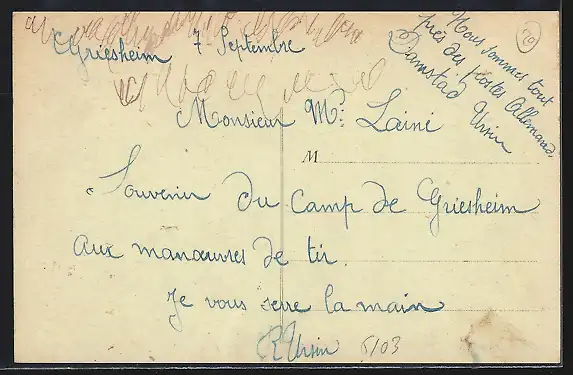 Griesheim 7 Septembre
Nous sommes tout
près des postes Allemands
Damstad Ursin
20
Monsieur Mr: Lainé
M
Souvenir du Camp de Griesheim
aux manœuvres de tir.
Je vous serre la main
R Ursin 5/03